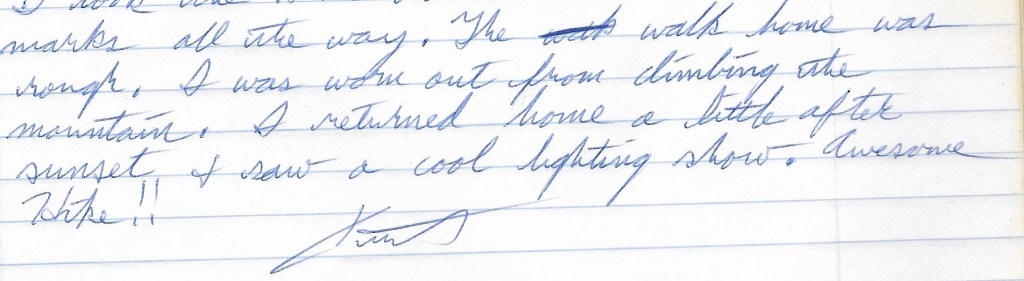 marks all the way. The walk home was
rough. I was worn out from climbing the
mountain. I returned home a little after
sunset & saw a cool lighting show. Awesome
Hike!!
Kurt